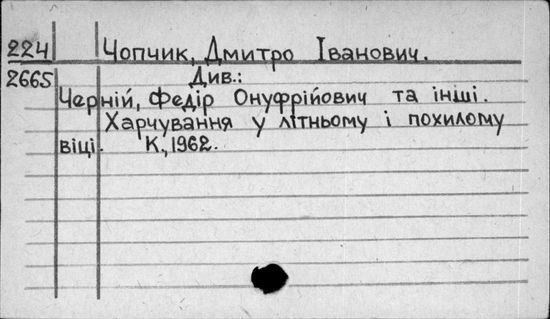 224 Чопчик, Дмитро Іванович.
2665 Див.:
Черній, Федір Онуфрійович та інші.
Харчування у літньому і похилому
віці. К., 1962.